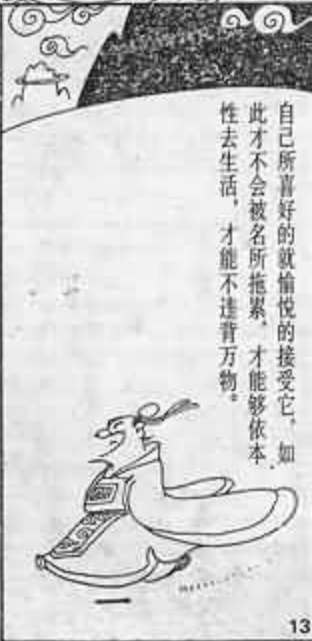 自己所喜好的就愉悦的接受它，如
此才不会被名所拖累，才能够依本
性去生活，才能不违背万物。
13